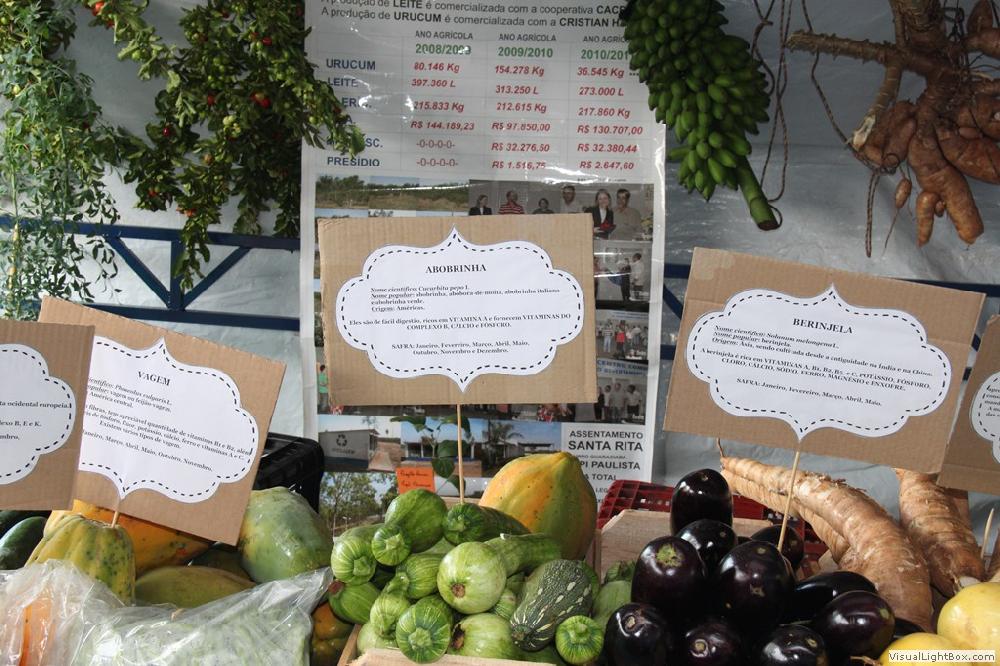 A produção de LEITE é comercializada com a cooperativa
A produção de URUCUM é comercializada com a CRISTIAN
ANO AGRÍCOLA ANO AGRÍCOLA ANO AGRÍ
2008/2009 2009/2010 2010/201
URUCUM 80.146 Kg 154.278 Kg 36.545 Kg
LEITE 397.360 L 313.250 L 273.000 L
215.833 Kg 212.615 Kg 217.860 Kg
R$ 144.189,23 R$ 97.850,00 R$ 130.707,00
-0-0-0-0- R$ 32.276,50 R$ 32.380,44
PRESÍDIO -0-0-0-0- R$ 1.516,75 R$ 2.647,60
ABOBRINHA
Nome científico: Cucurbita pepo L
Nome popular: abobrinha, abobora-de-moita, abobrinha italiana
e abobrinha verde.
Origem: Américas.
Eles são de fácil digestão, ricos em VITAMINA A e fornecem VITAMINAS DO
COMPLEXO B, CÁLCIO e FÓSFORO.
SAFRA: Janeiro, Fevereiro, Março, Abril, Maio,
Outubro, Novembro e Dezembro.
BERINJELA
Nome científico: Solanum melongena L.
Nome popular: berinjela.
Origem: Ásia, sendo cultivada desde a antiguidade na Índia e na China.
A berinjela é rica em VITAMINAS A, B1, B2, B5, e C, POTÁSSIO, FÓSFORO,
CLORO, CÁLCIO, SÓDIO, FERRO, MAGNÉSIO e ENXOFRE.
SAFRA: Janeiro, Fevereiro, Março, Abril, Maio.
VAGEM
científico: Phaseolus vulgaris L.
popular: vagem ou feijão-vagem.
América central.
fibras, tem apreciável quantidade de vitaminas B1 e B2, além
de fósforo, fluor, potássio, cálcio, ferro e vitaminas A e C.
Existem vários tipos de vagem.
Janeiro, Março, Abril, Maio, Outubro, Novembro.
ta ocidental europeia.
B, E e K.
mbro.
ASSENTAMENTO
SANTA RITA
PI PAULISTA
VisualLightBox.com